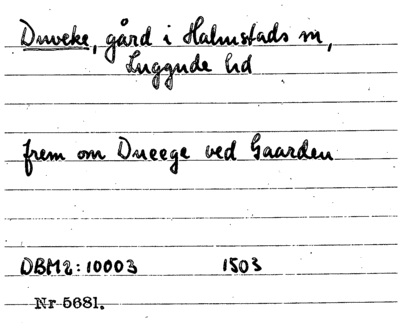 Duveke, gård i Halmstads sn,
Luggude hd
frem om Dueege ved Gaarden
DBM2:10003 1503
Nr 5681.